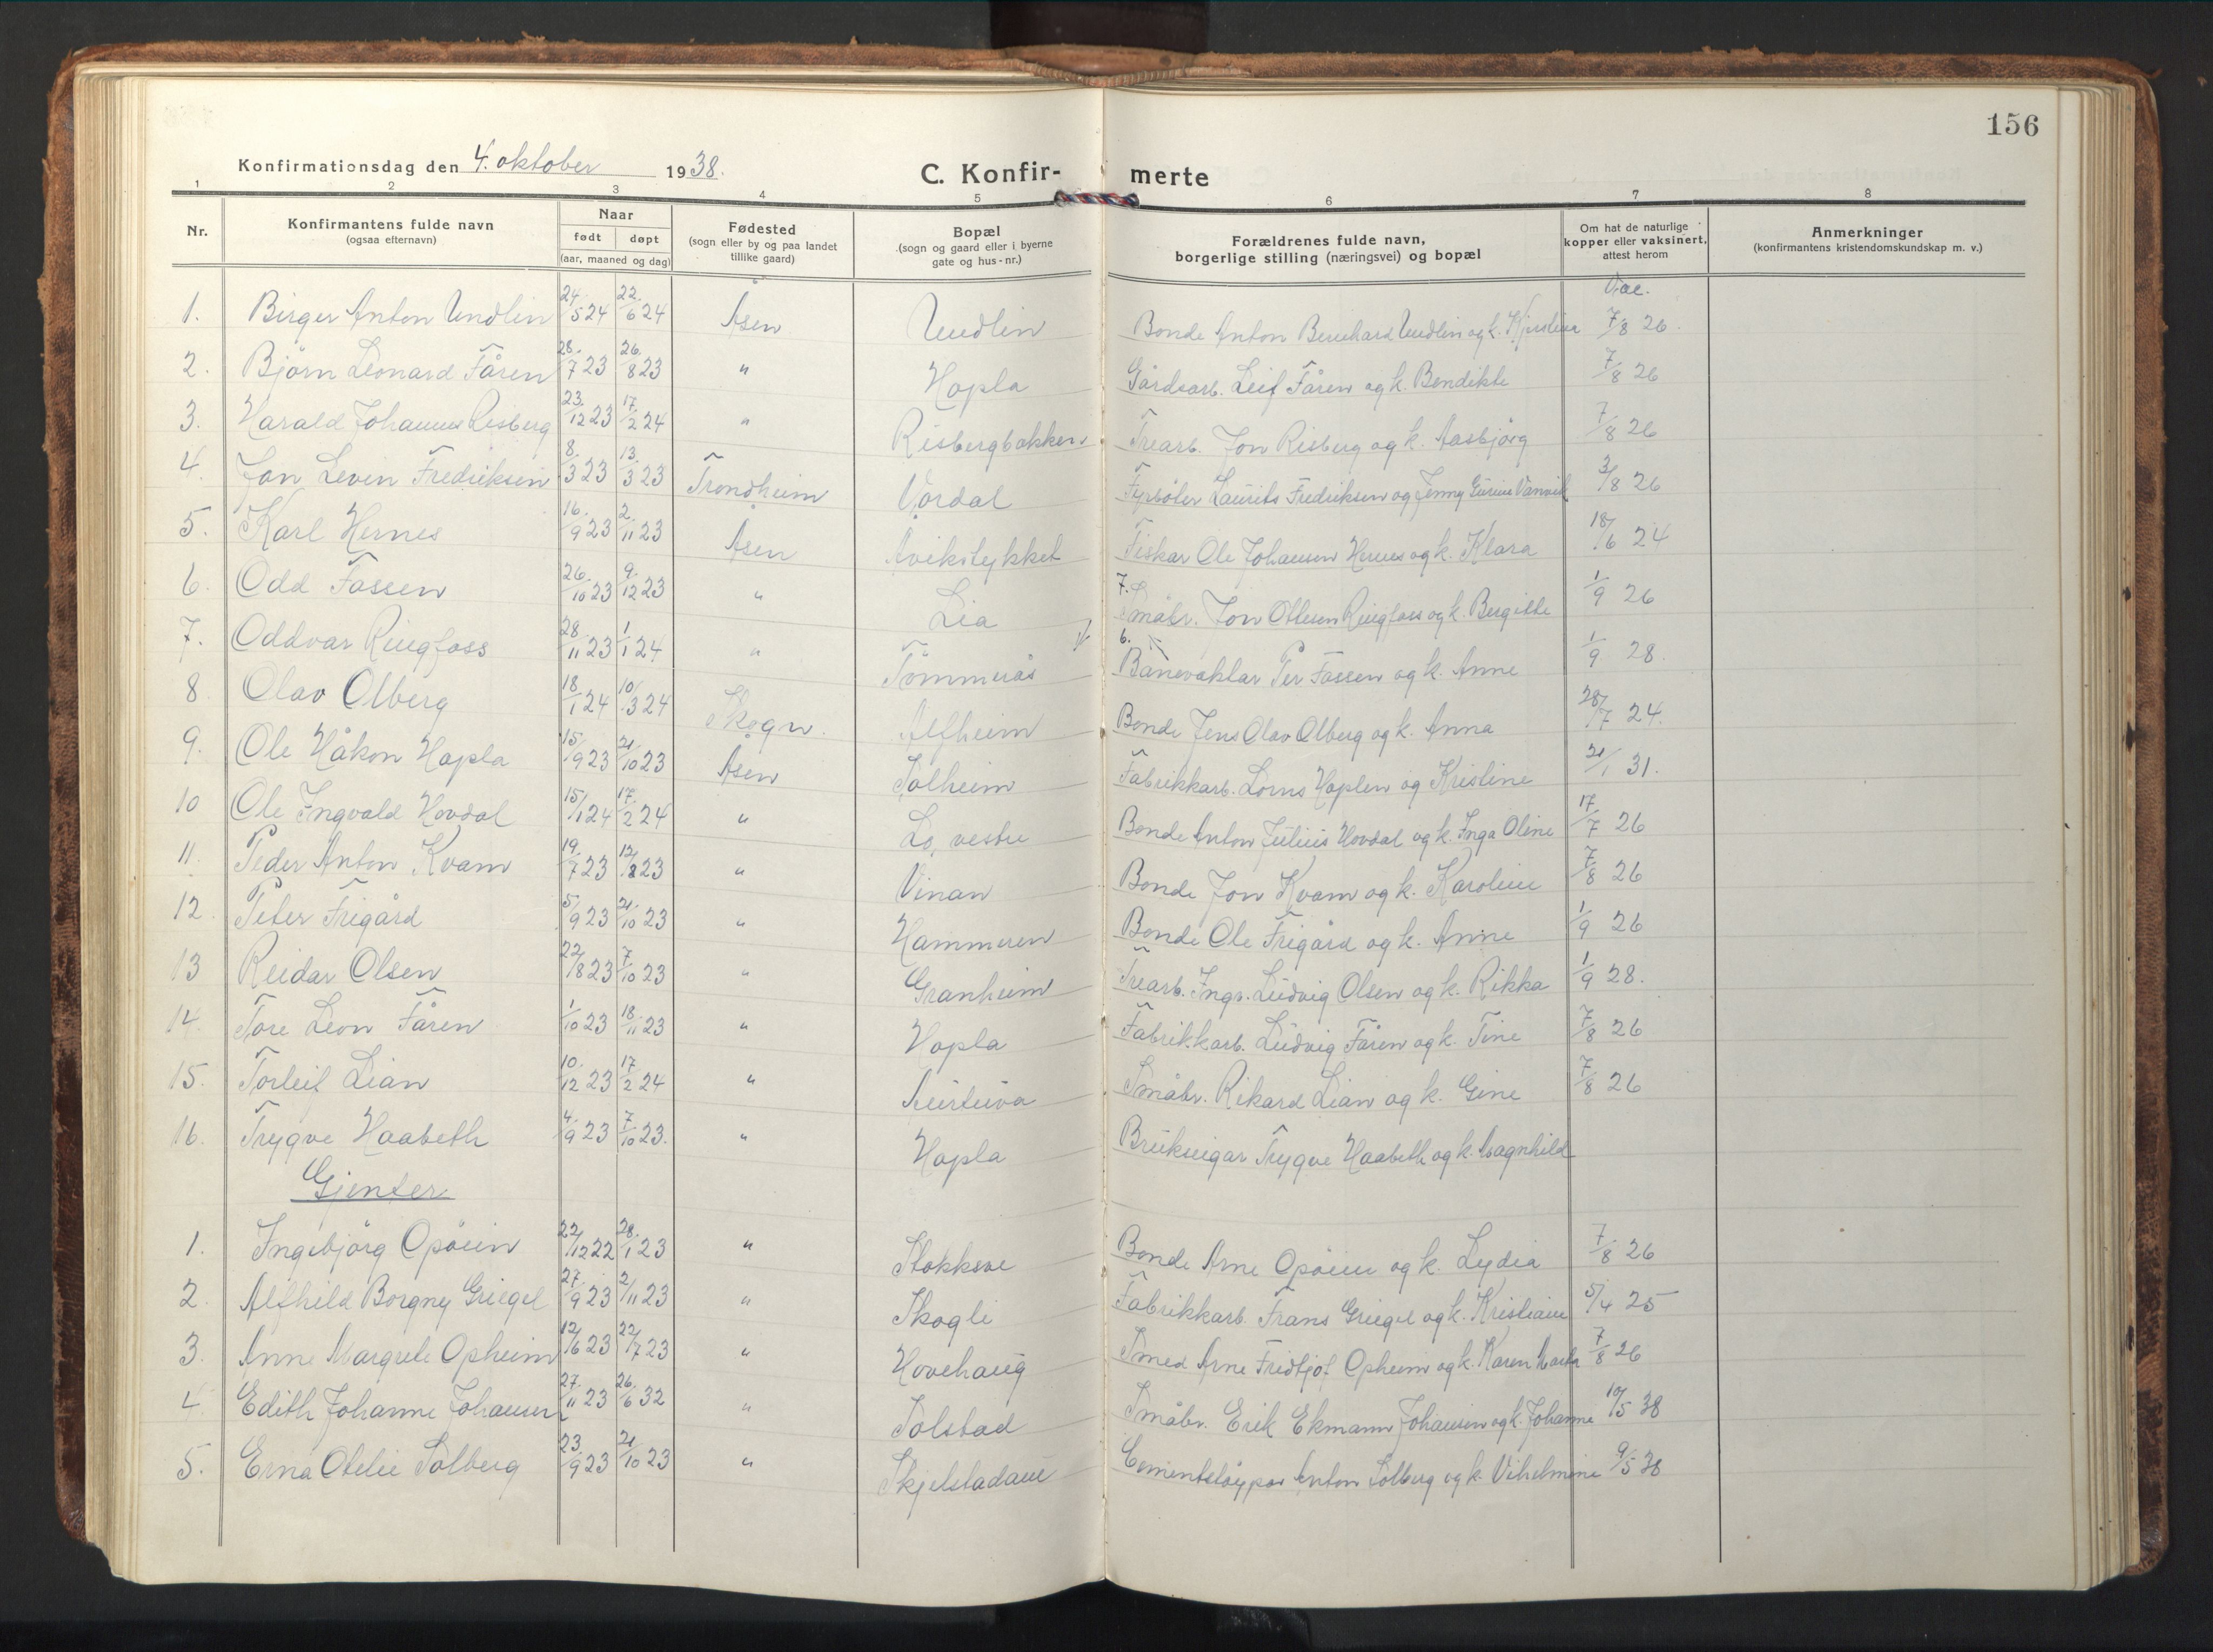 156
Konfirmationsdag den 4. oktober 1938. C. Konfir- merte
1 2 3 4 5 6 7 8
Nr. Konfirmantens fulde navn (ogsaa efternavn) Naar født døpt (aar, maaned og dag) Fødested (sogn eller by og paa landet tillike gaard) Bopæl (sogn og gaard eller i byerne gate og hus-nr.) Forældrenes fulde navn, borgerlige stilling (næringsvei) og bopæl Om hat de naturlige kopper eller vaksinert, attest herom Anmerkninger (konfirmantens kristendomskundskap m. v.)
Vac.
1. Birger Anton Undlin 24/5 24 22/6 24 Åsen Undlin Bonde Anton Bernhard Undlin og k. Kjerstina 7/8 26.
2. Björn Leonard Fåren 28/7 23 26/8 23 " Hopla Gårdsarb. Leif Fåren og k. Bendikte 7/8 26
3. Harald Johannes Risberg 23/12 23 17/2 24 " Risbergbakken Trearb. Jon Risberg og k. Aasbjörg 7/8 26
4. Jon Levin Fredriksen 8/3 23 13/3 23 Trondheim Vordal Fyrböter Laurits Fredriksen og Jenny Gurine Vanvik 3/8 26
5. Karl Hernes 16/9 23 2/11 23 Åsen Avikstykket Fiskar Ole Johansen Hernes og k. Klara 18/6 24
6. Odd Fossen 26/10 23 9/12 23 " Lia 7. Småbr. Jon Ottesen Ringfoss og k. Bergitte 1/9 26
7. Oddvar Ringfoss 28/11 23 1/1 24 " Tömmerås 6. Banevaktar Per Fossen og k. Anne 1/9 28.
8. Olav Olberg 18/1 24 10/3 24 Skogn. Alfheim Bonde Jens Olav Olberg og k. Anna 28/7 24.
9. Ole Håkon Hopla 15/9 23 21/10 23 Åsen Solheim Fabrikkarb. Lorns Hoplen og Kristine 21/1 31.
10 Ole Ingvald Hovdal 15/1 24 17/2 24 " Lo, vestre Bonde Anton Julius Hovdal og k. Inga Oline 17/7 26
11. Peder Anton Kvam 19/7 23 12/8 23 " Vinan Bonde Jon Kvam og k. Karoline 7/8 26
12. Peter Frigård 5/9 23 21/10 23 " Hammeren Bonde Ole Frigård og k. Anne 1/9 26
13 Reidar Olsen 22/8 23 7/10 23 " Granheim Trearb. Ingv. Ludvig Olsen og k. Rikka 1/9 28.
14. Tore Leon Fåren 1/10 23 18/11 23 " Hopla Fabrikkarb. Ludvig Fåren og k. Tine 7/8 26
15. Torleif Lian 10/12 23 17/2 24 " Aurtuva Småbr. Rikard Lian og k. Gine 7/8 26
16. Trygve Haabeth 4/9 23 7/10 23. " Hopla Brukseigar Trygve Haabeth og k. Magnhild
Gjenter
1. Ingebjörg Opöien 22/12 22 28/1 23 " Stokkvoe Bonde Arne Opöien og k. Lydia 7/8 26
2. Alfhild Borgny Griegel 27/9 23 2/11 23 " Skogli Fabrikkarb. Frans Griegel og k. Kristiane 5/4 25
3. Anne Margrete Opheim 12/6 23 22/7 23 " Hovehaug Smed Arne Fridtjof Opheim og k. Karen Marta 7/8 26
4. Edith Johanne Johansen 27/11 23 26/6 32 " Solstad Småbr. Erik Ekmann Johansen og k. Johanne 10/5 38
5. Erna Otelie Solberg 23/9 23 21/10 23 " Skjelstadaun Cementstöypar Anton Solberg og k. Vilhelmine 9/5 38